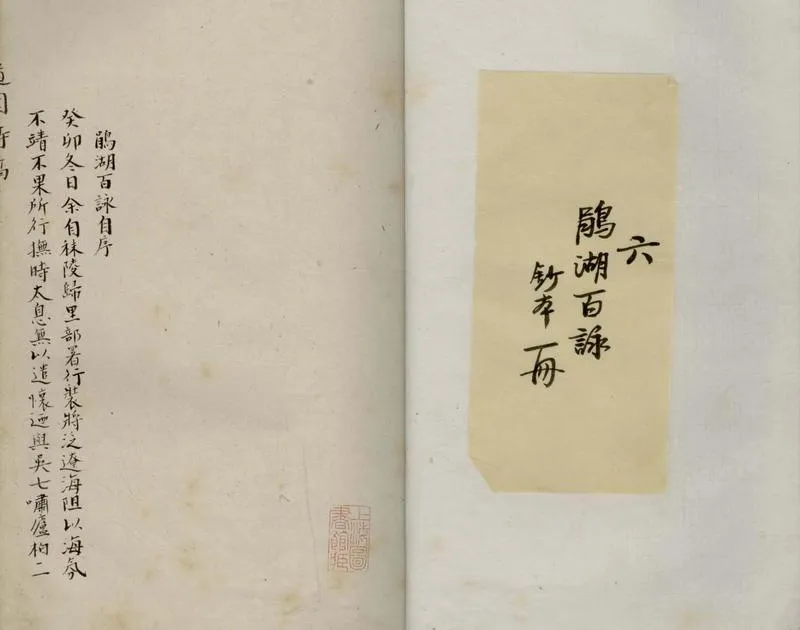 六
鵑湖百詠
鈔本一冊
鵑湖百詠自序
癸卯冬日余自秣陵歸里部署行裝將泛遼海阻以海氛
不靖不果所行撫時太息無以遣懷迺與吳七嘯廬柏二
上海圖
書館藏